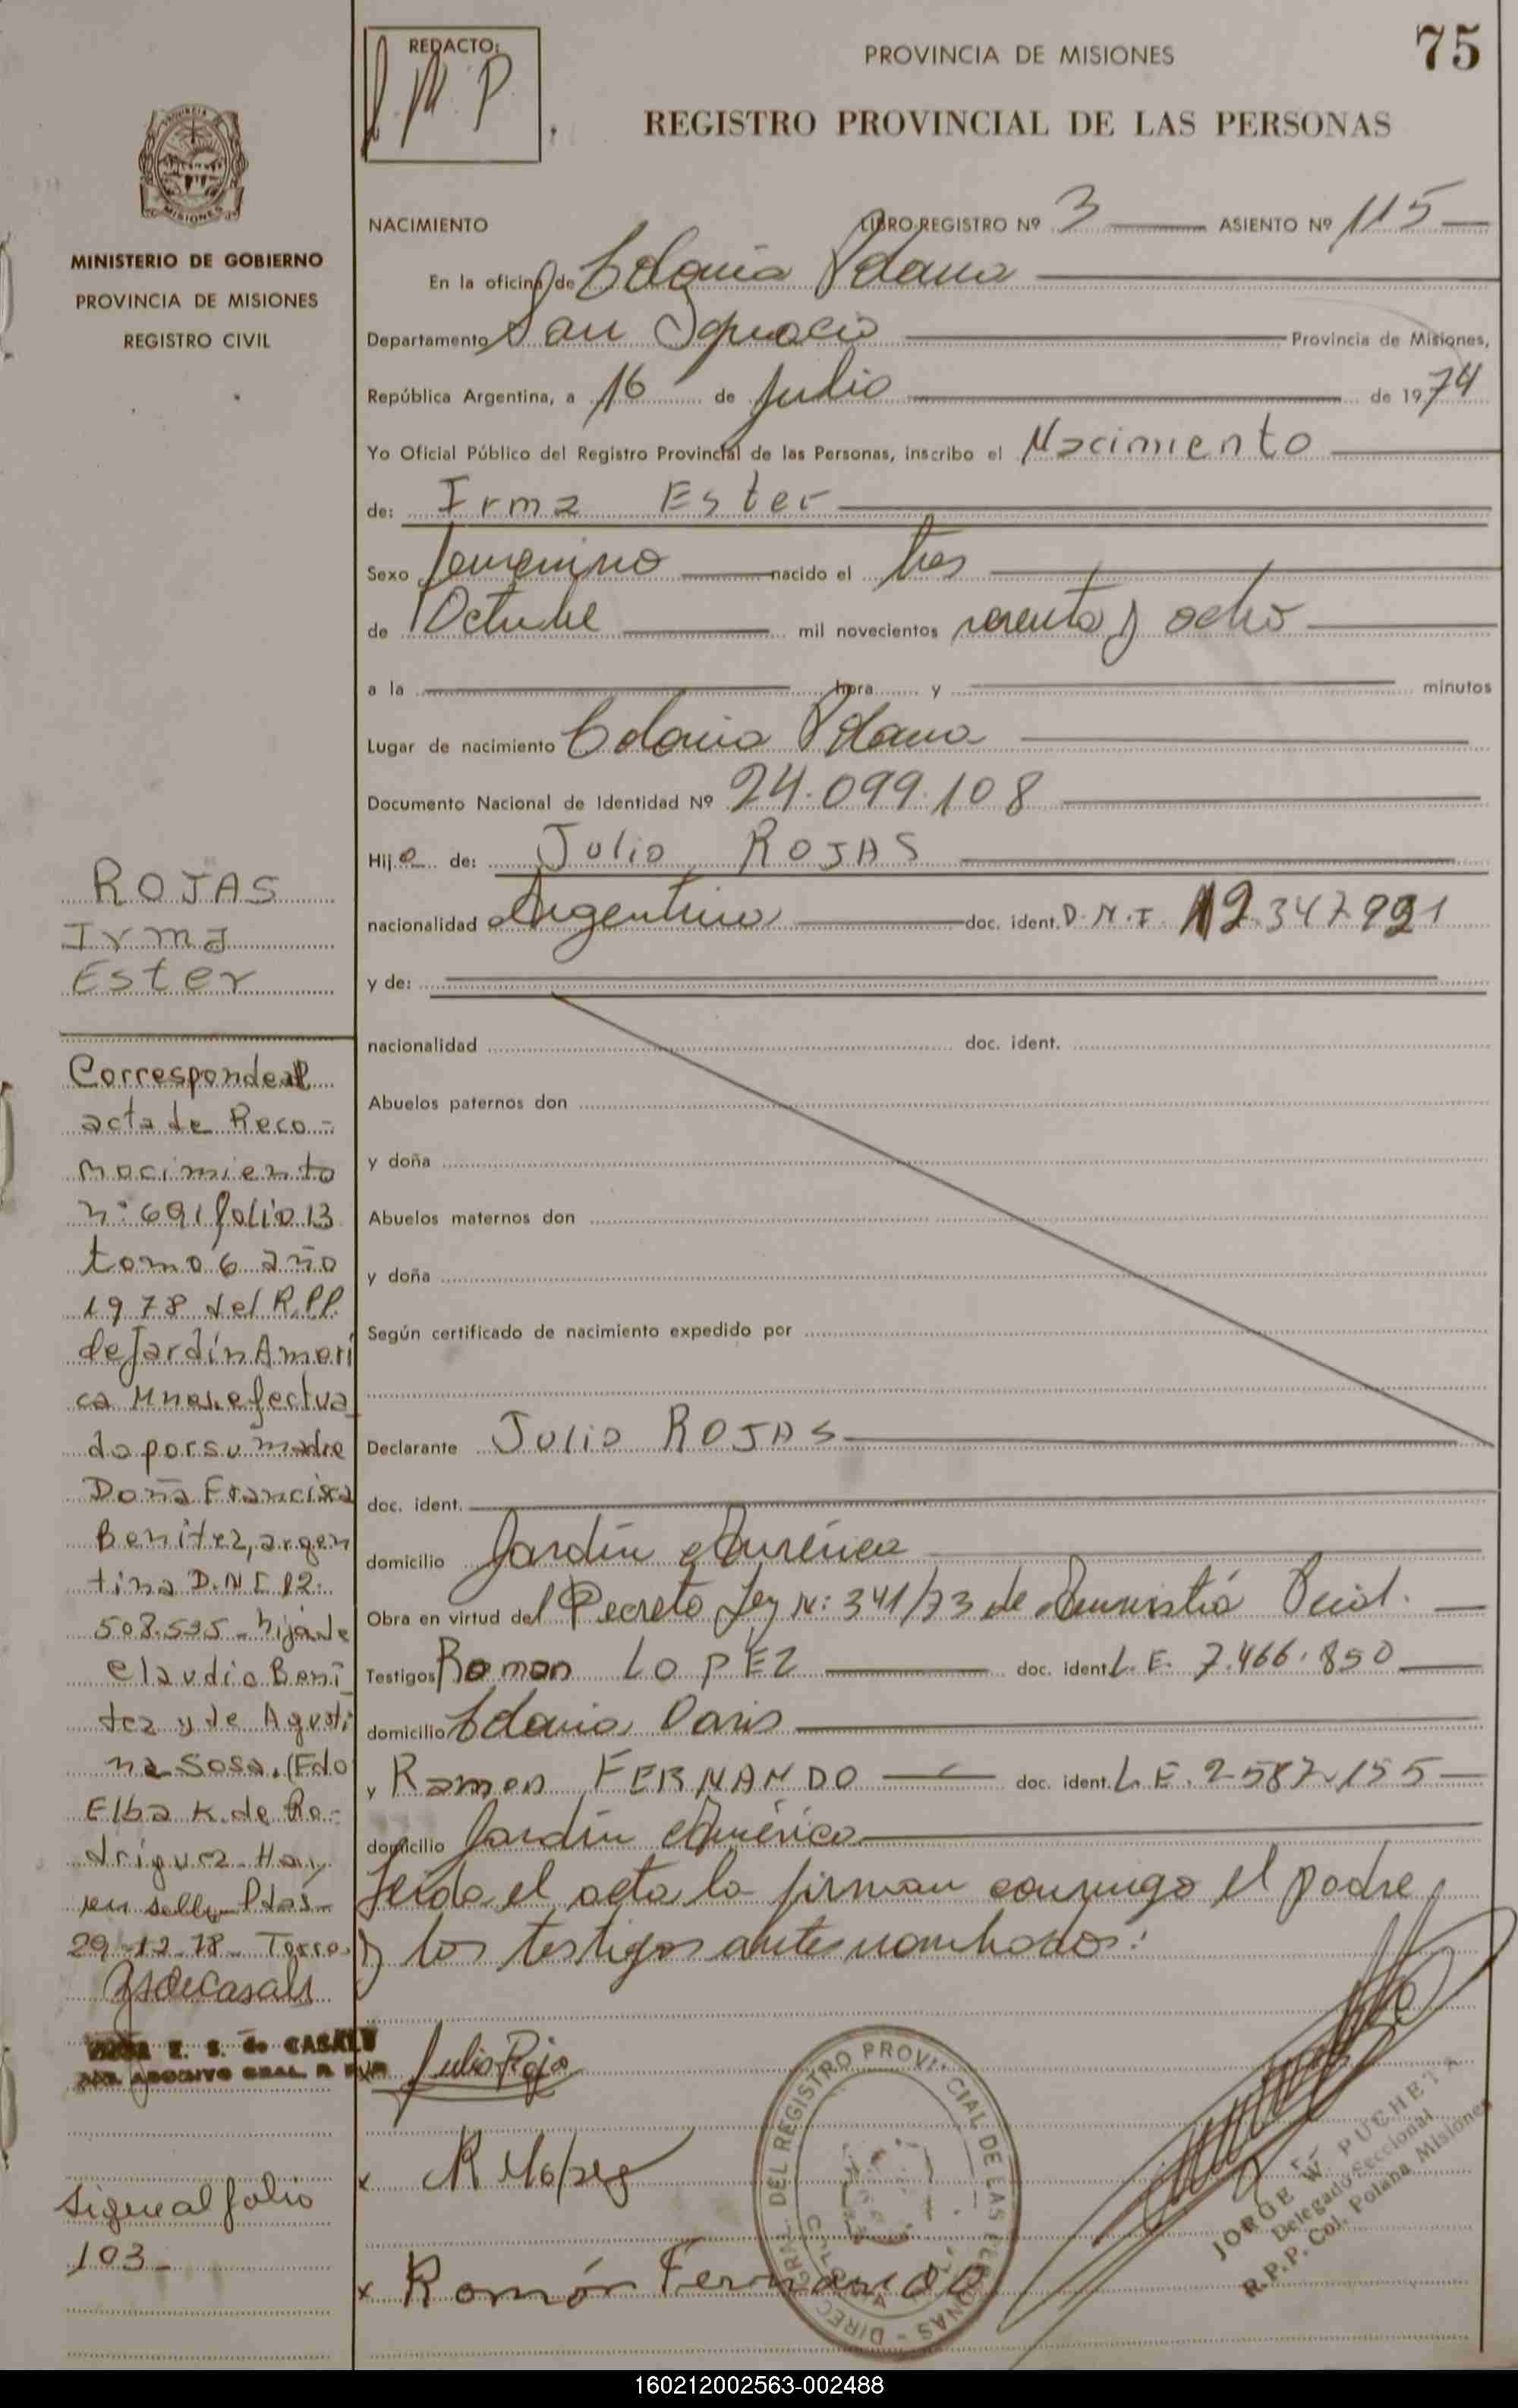 REDACTO:
J. M. P.
PROVINCIA DE MISIONES
75
REGISTRO PROVINCIAL DE LAS PERSONAS
PROVINCIA DE
MISIONES
MINISTERIO DE GOBIERNO
PROVINCIA DE MISIONES
REGISTRO CIVIL
NACIMIENTO LIBRO-REGISTRO Nº 3 ASIENTO Nº 115
En la oficina de Colonia Polana
Departamento San Ignacio Provincia de Misiones,
República Argentina, a 16 de Julio de 1974
Yo Oficial Público del Registro Provincial de las Personas, inscribo el Nacimiento
de: Irma Ester
Sexo femenino nacido el tres
de Octubre mil novecientos sesenta y ocho
a la hora y minutos
Lugar de nacimiento Colonia Polana
Documento Nacional de Identidad Nº 24.099.108
Hijo de: Julio ROJAS
nacionalidad Argentino doc. ident. D.N.I. 12.347.991
y de:
nacionalidad doc. ident.
Abuelos paternos don
y doña
Abuelos maternos don
y doña
Según certificado de nacimiento expedido por
Declarante Julio ROJAS
doc. ident.
domicilio Jardín América
Obra en virtud del Decreto Ley N: 341/73 de Amnistía
Testigos Roman LOPEZ doc. ident. L. E. 7.466.850
domicilio Colonia Oasis
y Ramon FERNANDO doc. ident. L. E. 2-587-155
domicilio Jardín América
Leída el acta la firman conmigo el padre
y los testigos antes nombrados:
ROJAS
Irma
Ester
Corresponde al
acta de Reco-
nocimiento
nº 691 folio 13
tomo 6 año
1978 del R.P.P.
de Jardín Ameri
ca Mnes. efectua
do por su madre
Doña Francisca
Benitez, argen
tina D.N.I 12.
508.535 - hija de
Claudio Beni
tez y de Agusti
na Sosa. (Fdo
Elba K. de Ro-
driguez - Hay
un sello - Pdas -
29-12-78
ZsdeCasals
E. S. de CASALS
ARCHIVO GRAL. R. P.
Sigue al folio
103-
Julio Roja
x R Lopez
x Román Fernando
DIREC. GRAL. DEL REGISTRO PROVINCIAL DE LAS PERSONAS
JORGE W. PUCHETA
Delegado Seccional
R.P.P. Col. Polana Misiones
160212002563-002488